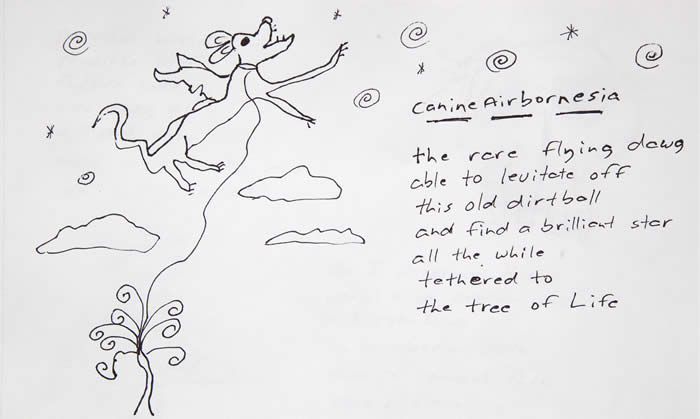 Canine Airbornesia
the rare flying dawg
able to levitate off
this old dirtball
and find a brilliant star
all the while
tethered to
the tree of Life